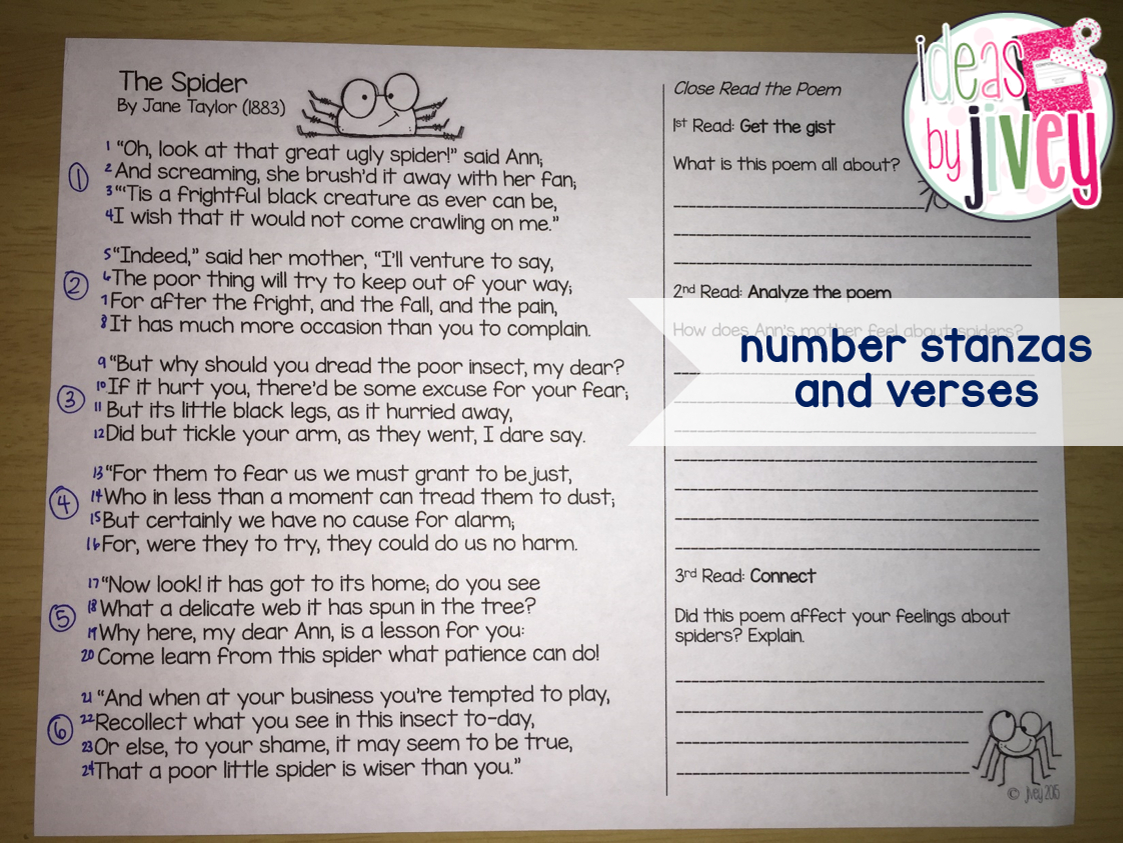 The Spider
By Jane Taylor (1883)
1 "Oh, look at that great ugly spider!" said Ann;
① 2 And screaming, she brush'd it away with her fan;
3 "'Tis a frightful black creature as ever can be,
4 I wish that it would not come crawling on me."
5 "Indeed," said her mother, "I'll venture to say,
② 6 The poor thing will try to keep out of your way;
7 For after the fright, and the fall, and the pain,
8 It has much more occasion than you to complain.
9 "But why should you dread the poor insect, my dear?
10 If it hurt you, there'd be some excuse for your fear;
③ 11 But its little black legs, as it hurried away,
12 Did but tickle your arm, as they went, I dare say.
13 "For them to fear us we must grant to be just,
④ 14 Who in less than a moment can tread them to dust;
15 But certainly we have no cause for alarm;
16 For, were they to try, they could do us no harm.
17 "Now look! it has got to its home; do you see
⑤ 18 What a delicate web it has spun in the tree?
19 Why here, my dear Ann, is a lesson for you:
20 Come learn from this spider what patience can do!
21 "And when at your business you're tempted to play,
⑥ 22 Recollect what you see in this insect to-day,
23 Or else, to your shame, it may seem to be true,
24 That a poor little spider is wiser than you."
Close Read the Poem
1st Read: Get the gist
What is this poem all about?
2nd Read: Analyze the poem
How does Ann's mother feel about spiders?
3rd Read: Connect
Did this poem affect your feelings about
spiders? Explain.
© jivey 2015
ideas
by jivey
number stanzas
and verses